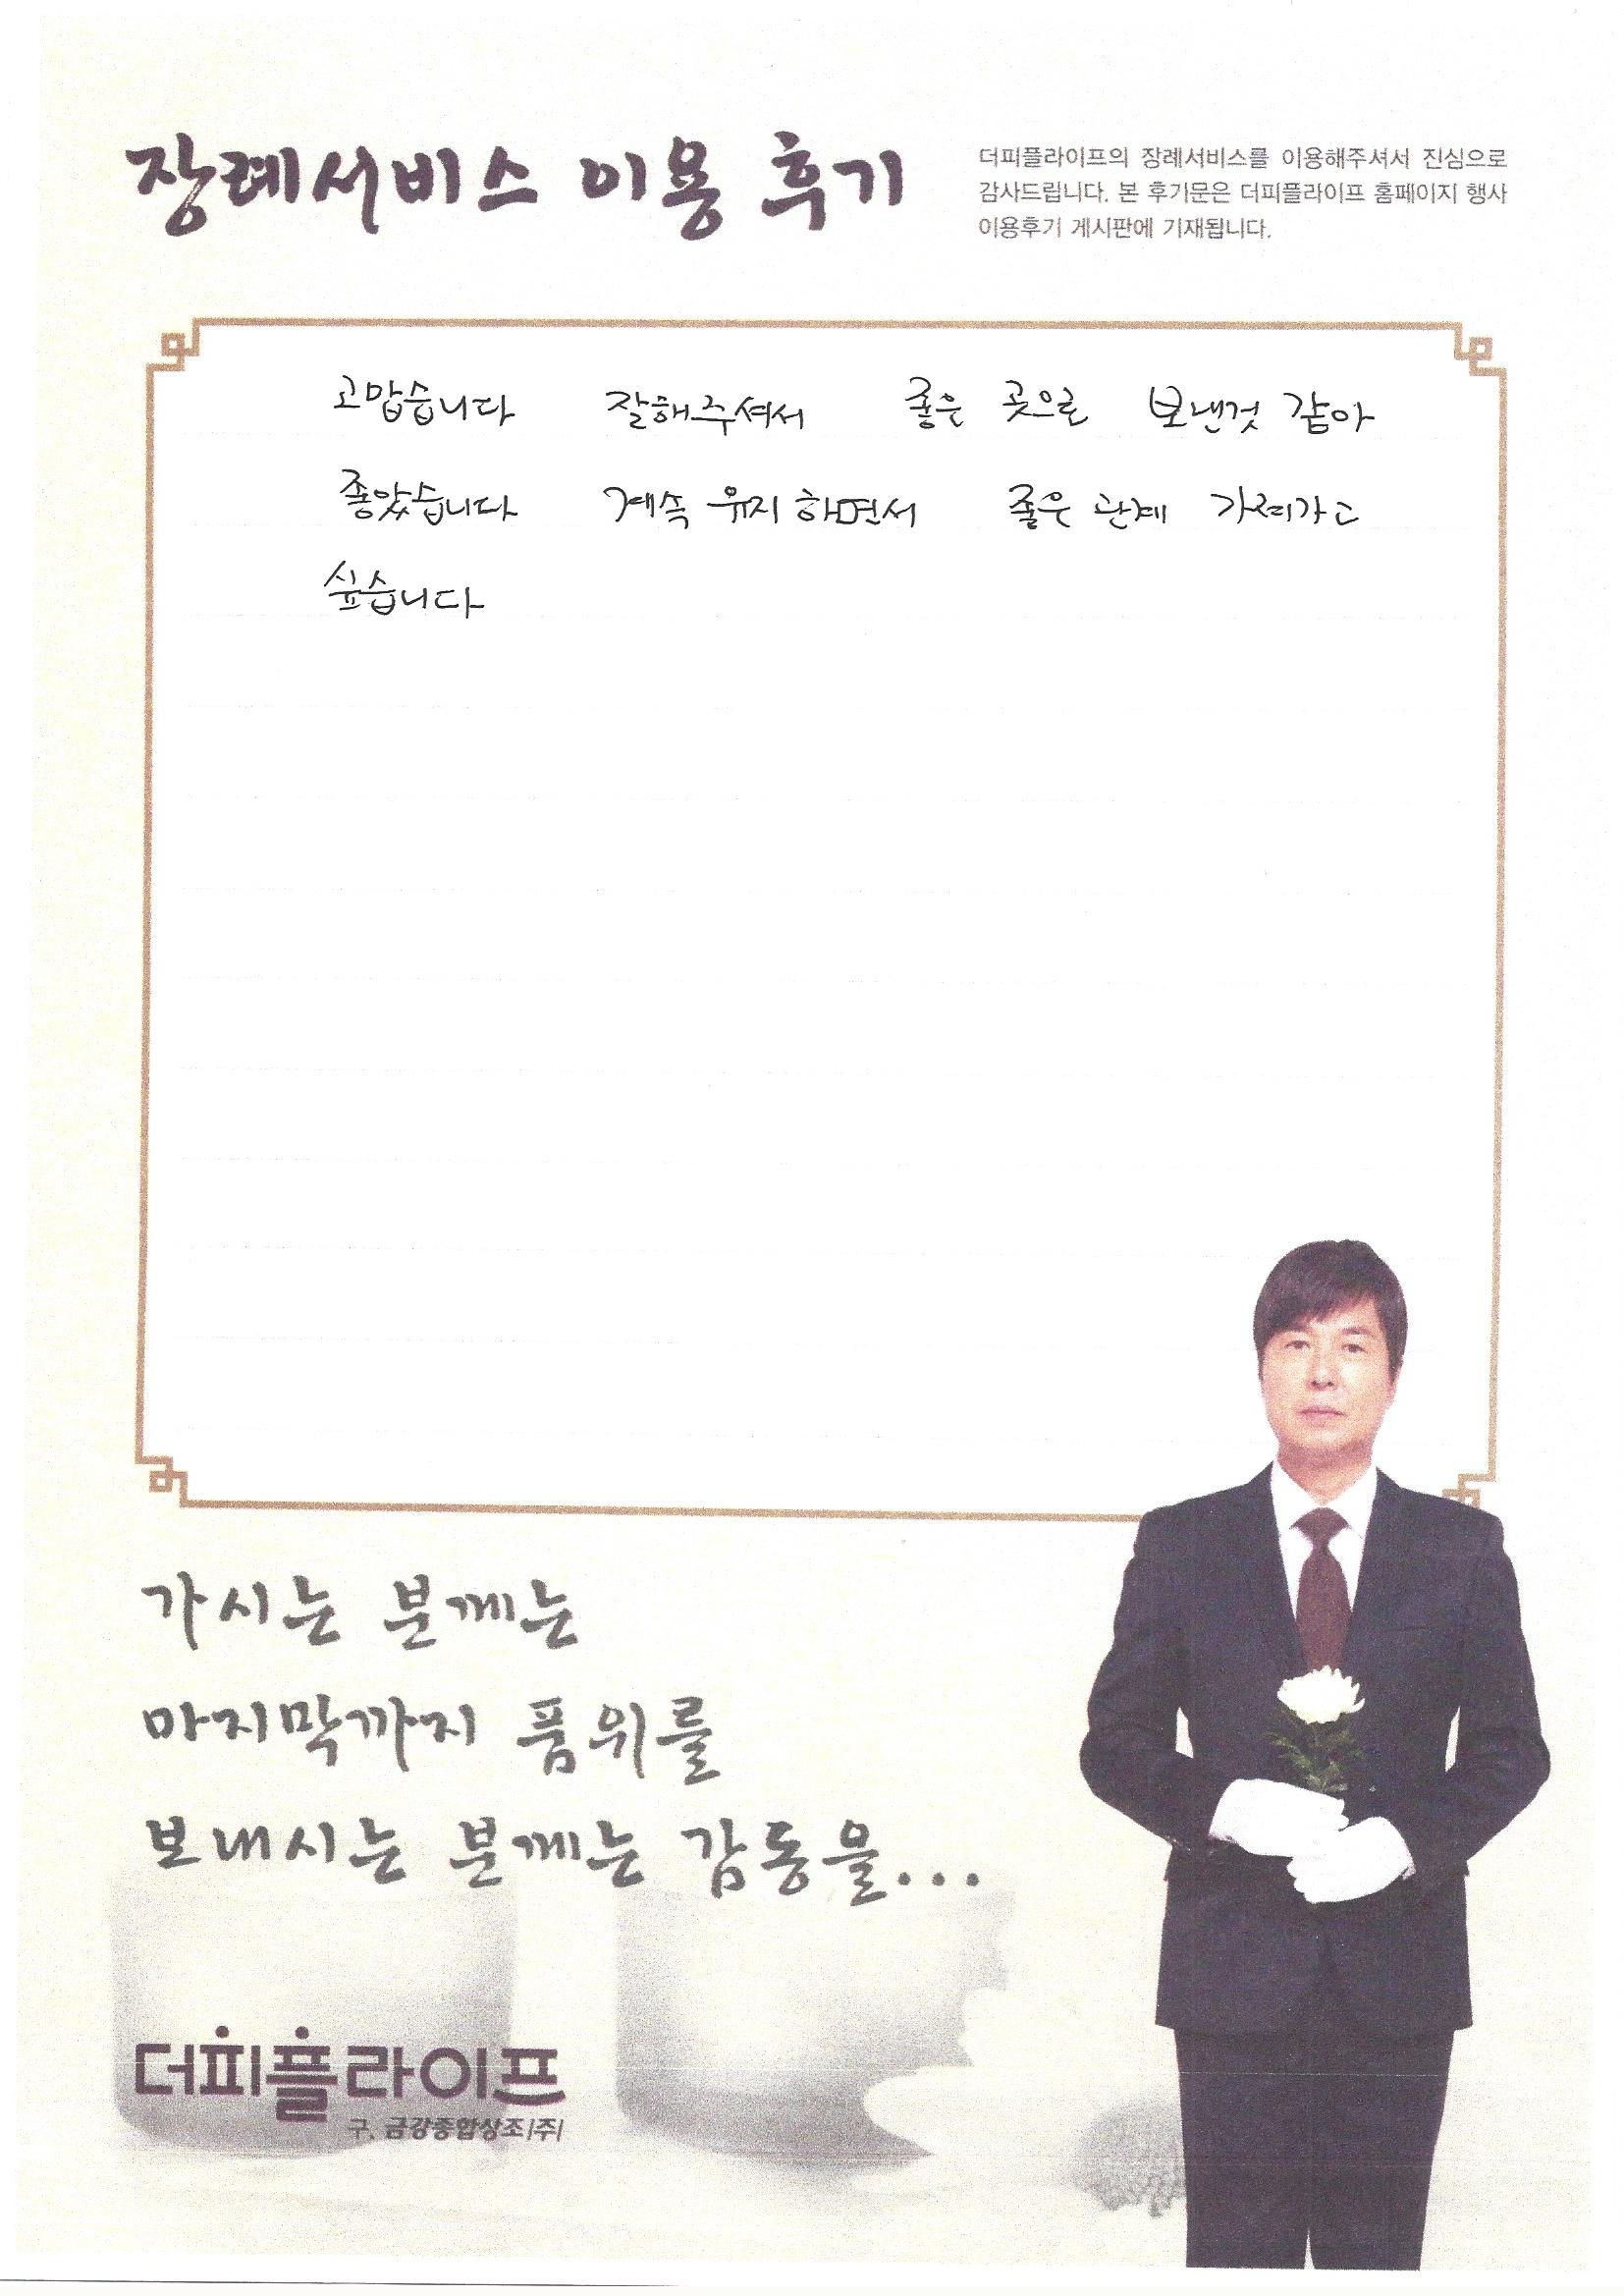 장례서비스 이용 후기
더피플라이프의 장례서비스를 이용해주셔서 진심으로
감사드립니다. 본 후기문은 더피플라이프 홈페이지 행사
이용후기 게시판에 기재됩니다.
고맙습니다 잘해주셔서 좋은 곳으로 보낸것 같아
좋았습니다 계속 유지 하면서 좋은 관계 가져가고
싶습니다
가시는 분께는
마지막까지 품위를
보내시는 분께는 감동을...
더피플라이프
구. 금강종합상조(주)